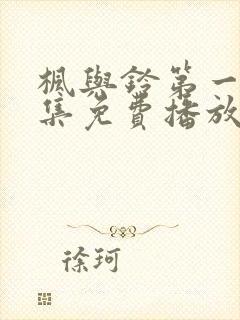 楓與鈴第一
集免費播放
徐珂